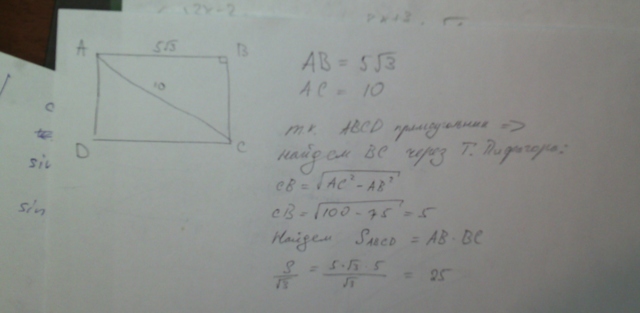 A 5√3 B
10
D C
AB = 5√3
AC = 10
т.к. ABCD прямоугольник =>
найдем BC через Т. Пифагора:
CB = √AC² - AB²
CB = √100 - 75 = 5
Найдем S_ABCD = AB · BC
S/√3 = 5·√3·5/√3 = 25
sin
sin